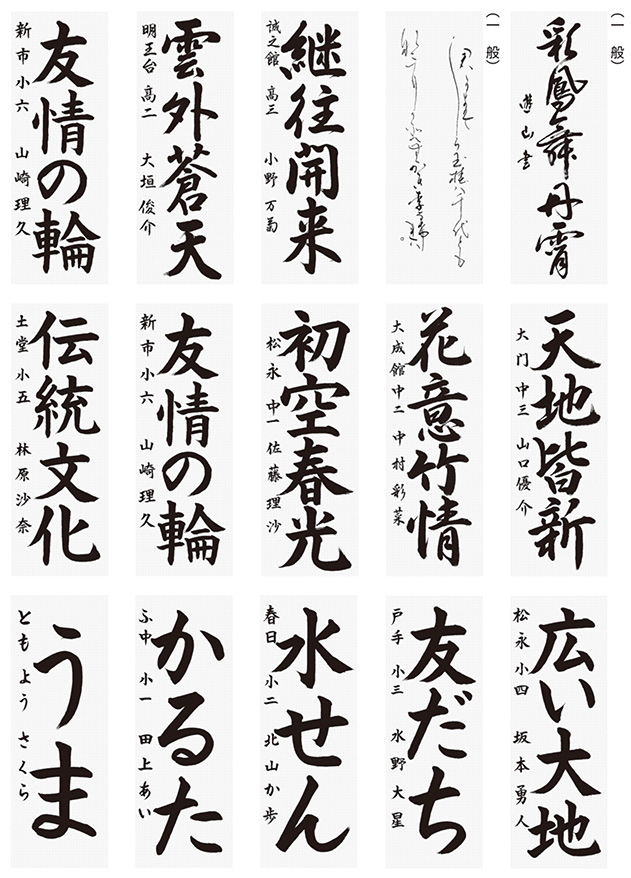 (一般)
彩鳳舞丹霄
遊山書
(一般)
継往開来
誠之館 高三 小野万菊
雲外蒼天
明王台 高二 大垣俊介
友情の輪
新市小六 山崎理久
天地皆新
大门中三 山口優介
花意竹情
大成館中二 中村彩菜
初空春光
松永中一 佐藤理沙
友情の輪
新市小六 山崎理久
伝統文化
土堂小五 林原沙奈
広い大地
松永小四 坂本勇人
友だち
戸手小三 水野大星
水せん
春日小二 北山か歩
かるた
ふ中小一 田上あい
うま
ともよう さくら